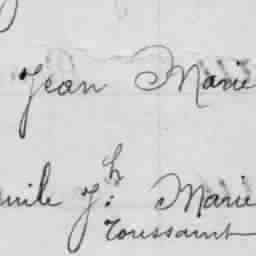 Jean Marie
mile Jh. Marie
Toussaint